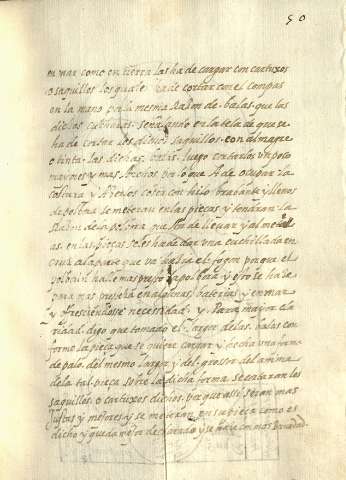 50
en mar como en tierra las ha de cargar con cartuxos
o saquillos los quales hade cortar con el compas
en la mano por la mesma Razon de balas que las
dichas culebrinas, señalando en la tela de que se
ha de cortar los dichos saquillos con almagre
o tinta las dichas balas. luego cortarlos un poco
mayores y mas por lo que A de ocupar la
costura y despues coser con hilo brabante y llenos
de polbora se meteran en las pieças y tendran la
Razon de la polbora que an de llevar y al meter
las en las pieças seles ha de dar una cuchillada en
cruz a la parte que va hazia el fogon para que el
polvorin halle mas presto la polbora y esto se hara
para mas presteza en algunas baterias y en mar
y ofresciendose necesidad y Para mayor cla
ridad digo que tomado el largor de las balas con
forme la pieça que se quiere cargar y hecha una forma
de palo del mesmo largor y del gruesso del anima
de la tal pieça sobre la dicha forma se cortaran los
saquillos o cartuxos dichos, porque assi seran mas
justos y mejores y se meteran en la pieça como es
dicho y queda mejor declarado y se hara con mas brevedad.